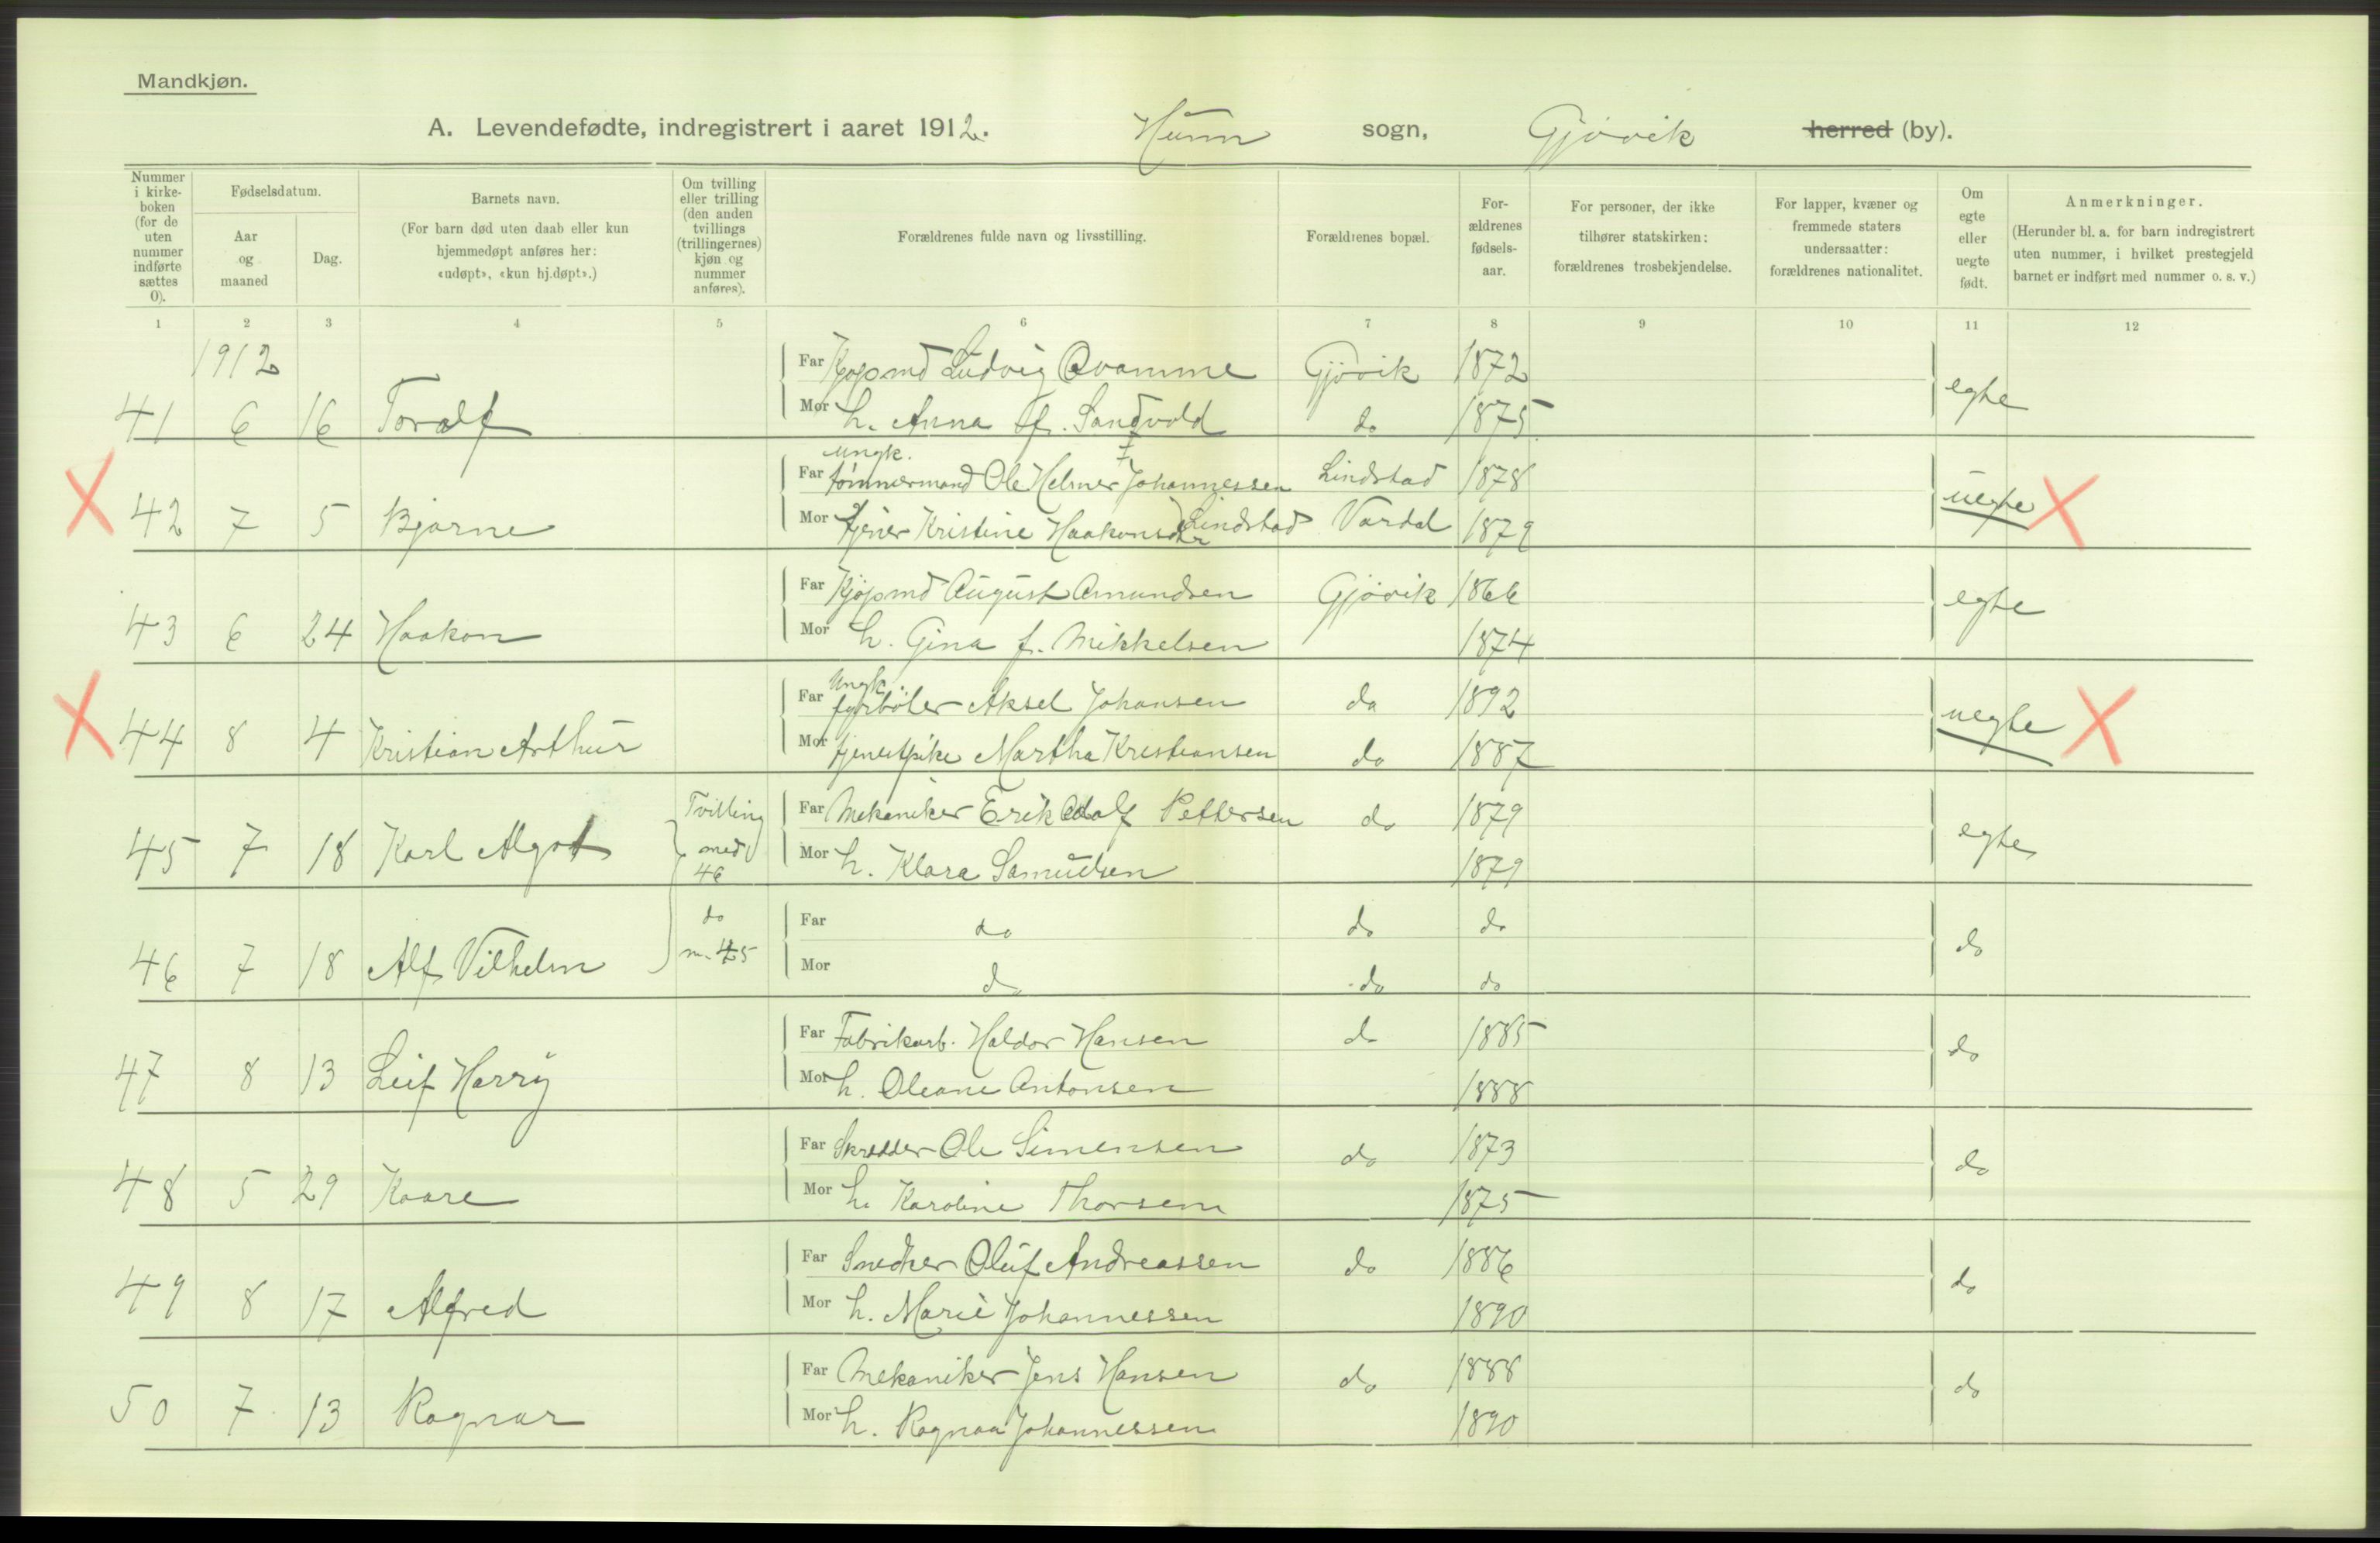 Mandkjøn.
A. Levendefødte, indregistrert i aaret 1912. Hunn sogn, Gjøvik herred (by).
Nummer i kirke-boken (for de uten nummer indførte sættes 0).
Fødselsdatum.
Aar og maaned
Dag.
Barnets navn.
(For barn død uten daab eller kun hjemmedøpt anføres her: «udøpt», «kun hj.døpt».)
Om tvilling eller trilling (den anden tvillings (trillingernes) kjøn og nummer anføres).
Forældrenes fulde navn og livsstilling.
Forældrenes bopæl.
For-ældrenes fødsels-aar.
For personer, der ikke tilhører statskirken: forældrenes trosbekjendelse.
For lapper, kvæner og fremmede staters undersaatter: forældrenes nationalitet.
Om egte eller uegte født.
Anmerkninger.
(Herunder bl. a. for barn indregistrert uten nummer, i hvilket prestegjeld barnet er indført med nummer o. s. v.)
1 2 3 4 5 6 7 8 9 10 11 12
1912
Far Kjøpmd Ludvig Qvamme Gjøvik 1872
41 6 16 Toralf Mor h. Anna f. Sandvold do 1875 egte
ungk.
Far tømmermand Ole Helmer Johannessen Lindstad 1878
42 7 5 Bjarne Mor tjener Kristine Haakonsdtr Lindstad Vardal 1879 uegte
Far Kjøpmd August Amundsen Gjøvik 1866
43 6 24 Haakon Mor h. Gina f. Mikkelsen 1874 egte
Ungk.
Far fyrbøter Aksel Johansen do 1892
44 8 4 Kristian Arthur Mor tjenestpike Martha Kristiansen do 1887 uegte
Far Mekaniker Erik Adolf Pettersen do 1879
45 7 18 Karl Algot Tvilling med 46 Mor h. Klara Samuelsen 1879 egte
Far do do do
46 7 18 Alf Vilhelm do m. 45 Mor do do do do
Far Fabrikarb. Haldor Hansen do 1885
47 8 13 Leif Harry Mor h. Oleane Antonsen 1888 do
Far Skrædder Ole Simensen do 1873
48 5 29 Kaare Mor h. Karoline Thorsen 1875 do
Far Snedker Oluf Andreassen do 1886
49 8 17 Alfred Mor h. Marie Johannessen 1890 do
Far Mekaniker Jens Hansen do 1888
50 7 13 Ragnar Mor h. Ragnaa Johannessen 1890 do